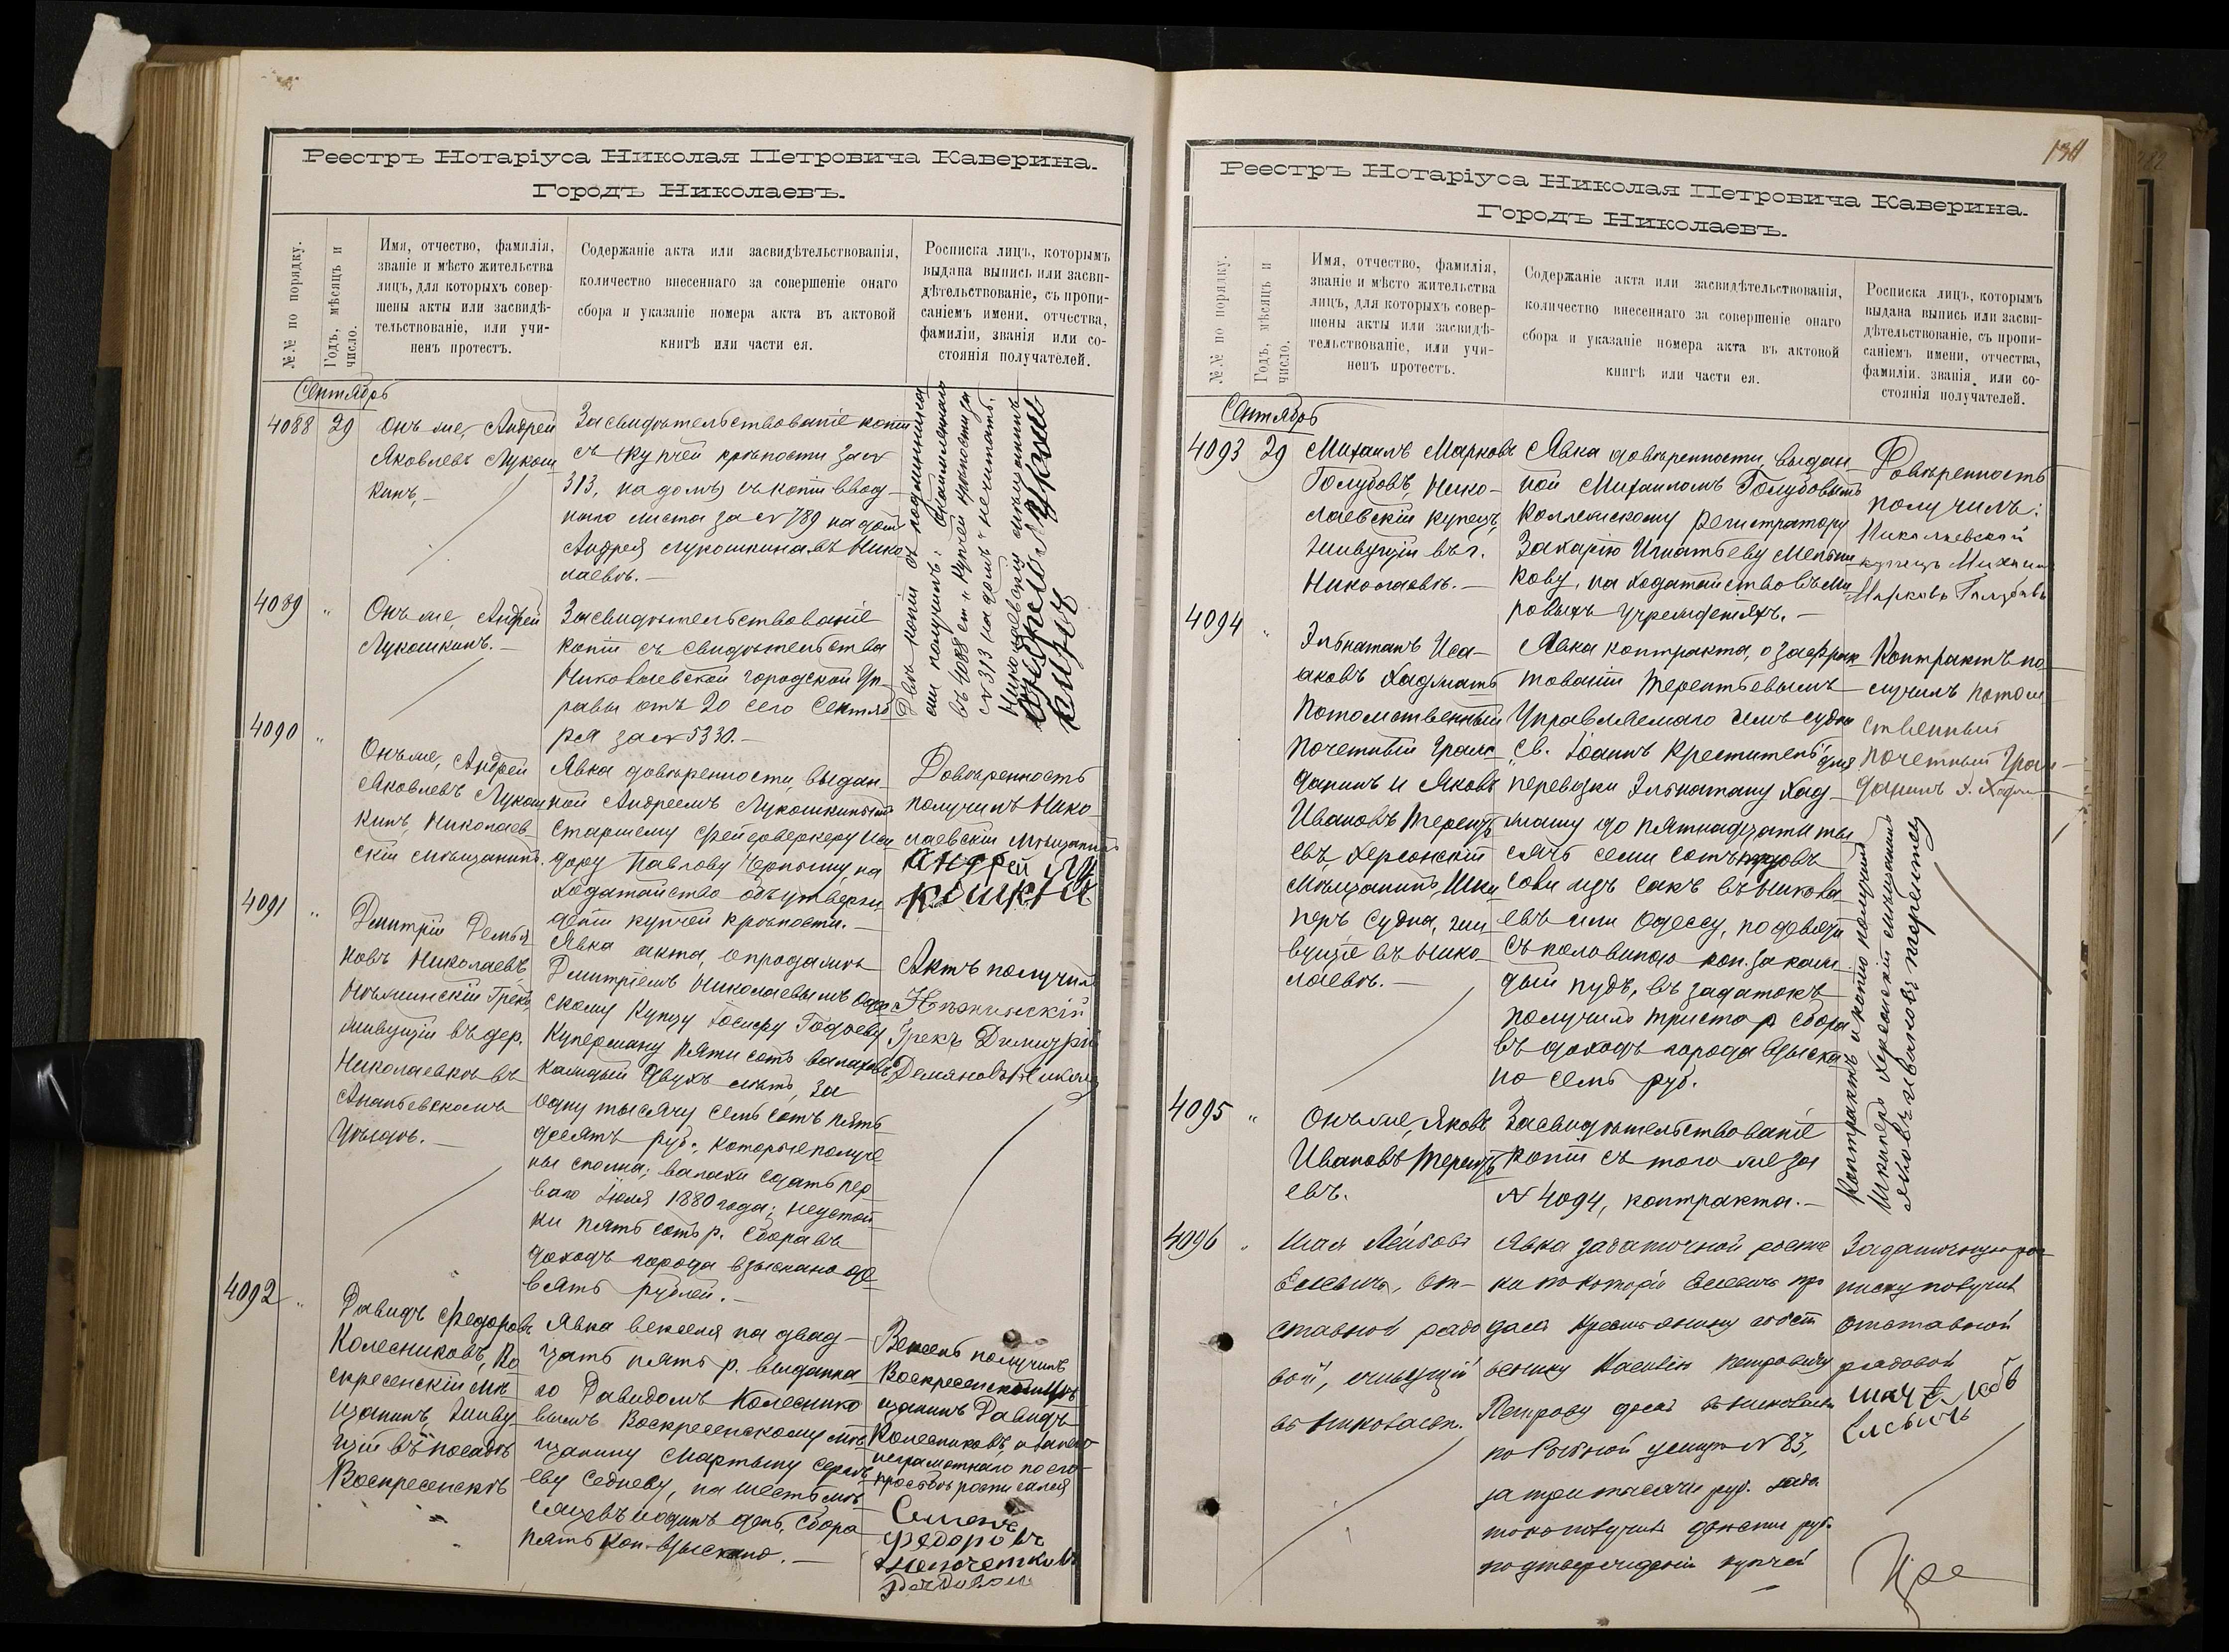 Реестръ Нотаріуса Николая Петровича Каверина.
Городъ Николаевъ.
№№ по порядку.
Годъ, мѣсяцъ и
число.
Имя, отчество, фамилія,
званіе и мѣсто жительства
лицъ, для которыхъ совер-
шены акты или засвидѣ-
тельствованіе, или учи-
ненъ протестъ.
Содержаніе акта или засвидѣтельствованія,
количество внесеннаго за совершеніе онаго
сбора и указаніе номера акта въ актовой
книгѣ или части ея.
Росписка лицъ, которымъ
выдана выпись или засви-
дѣтельствованіе, съ пропи-
саніемъ имени, отчества,
фамиліи, званія или со-
стоянія получателей.
Сентябрь
4088
29
Онъ же, Андрей
Яковлевъ Лукош
кинъ,-
Засвидѣтельствованіе копіи
съ купчей крѣпости за №
313, на домъ, съ копіи ввод-
наго листа за № 789 на домъ
Андрея Лукошкина въ Нико
лаевѣ.-
4089
"
Онъ же, Андрей
Лукошкинъ.-
Засвидѣтельствованіе
копіи съ свидѣтельства
Николаевской городской Уп-
равы отъ 20 сего Сентяб
ря за № 5330.-
Двѣ копіи съ подлинника
ми получилъ:
въ 4088 ст. "купчей крѣпости за
№ 313 на домъ" не читать.
Николаевскій мѣщанинъ
Андрей Лукош
кинъ
4090
"
Онъ же, Андрей
Яковлевъ Лукош
кинъ, Николаев-
скій мѣщанинъ.
Явка довѣренности, выдан-
ной Андреемъ Лукошкинымъ
старшему фейерверкеру Иси
дору Павлову Черному на
ходатайство объ утверж
деніи купчей крѣпости.-
Довѣренность
получилъ Нико-
лаевскій мѣщанинъ
Андрей Лу
кошкин
4091
"
Дмитрій Демья
новъ Николаевъ
Нѣжинскій Грекъ,
живущій въ дер.
Николаевкѣ въ
Ананьевскомъ
Уѣздѣ.-
Явка акта, о продажѣ
Дмитріемъ Николаевымъ Одес
скому Купцу Іосифу Годоеву
Куперману пяти сотъ валаховъ
каждый двухъ лѣтъ, за
одну тысячу семь сотъ пять
десятъ руб., которые получе
ны сполна; валахи сдать пер
ваго Іюля 1880 года; неустой
ки пять сотъ р. Сбора въ
доходъ города взыскано де-
вять рублей.-
Актъ получилъ
Нѣжинскій
Грекъ Дмитрій
Демяновъ Николаев
4092
"
Давидъ Федоровъ
Колесниковъ, Во
скресенскій мѣ
щанинъ, живу
щій въ посадѣ
Воскресенскѣ
Явка векселя на двад-
цать пять р. выданна
го Давидомъ Колеснико
вымъ Воскресенскому мѣ
щанину Мартыну Сергѣ
еву Седневу, на шесть мѣ-
сяцевъ и одинъ день, сбора
пять коп. взыскано.-
Вексель получилъ
Воскресенскій мѣ
щанинъ Давидъ
Колесниковъ, а за него
неграмотнаго по его
просьбѣ росписался
Семенъ
Федоровъ
134
Реестръ Нотаріуса Николая Петровича Каверина.
Городъ Николаевъ.
№№ по порядку.
Годъ, мѣсяцъ и
число.
Имя, отчество, фамилія,
званіе и мѣсто жительства
лицъ, для которыхъ совер-
шены акты или засвидѣ-
тельствованіе, или учи-
ненъ протестъ.
Содержаніе акта или засвидѣтельствованія,
количество внесеннаго за совершеніе онаго
сбора и указаніе номера акта въ актовой
книгѣ или части ея.
Росписка лицъ, которымъ
выдана выпись или засви-
дѣтельствованіе, съ пропи-
саніемъ имени, отчества,
фамиліи, званія или со-
стоянія получателей.
Сентябрь
4093
29
Михаилъ Марковъ
Голубовъ, Нико-
лаевскій купецъ,
живущій въ г.
Николаевѣ.-
Явка довѣренности, выдан
ной Михаиломъ Голубовымъ
Коллежскому Регистратору
Захарію Игнатьеву Мельни
кову, на ходатайство въ Ми
ровыхъ учрежденіяхъ.-
Довѣренность
получилъ:
Николаевской
купецъ Михаил
Марковъ Голубовъ
4094
"
Эльнатанъ Иса-
аковъ Хаджатъ
Потомственный
Почетный Граж
данинъ и Яковъ
Ивановъ Терентъ
евъ, Херсонскій
мѣщанинъ, Шки
перъ судна, жи
вущіе въ Нико
лаевѣ.-
Явка контракта, о зафрах
тованіи Терентьевымъ
управляемаго имъ судна
Св. Іоаннъ Креститель, для
перевозки Эльнатану Хад-
жашу до пятнадцати ты
сячъ семи сотъ пудовъ
соли изъ Сакъ въ Никола
евъ или Одессу, по девяти
съ половиною коп. за каж
дый пудъ, въ задатокъ
получилъ триста р. Сбора
въ доходъ города взыска
но семь руб.
Контрактъ по
лучилъ потом
ственный
почетный Граж-
данинъ Э. Хадж
Контрактъ и копію получилъ
Шкиперъ Херсонскій мѣщанинъ
Яковъ Ивановъ Терентев
4095
"
Онъ же, Яковъ
Ивановъ Терентъ
евъ.
Засвидѣтельствованіе
копіи съ того же за
№ 4094, контракта.-
4096
"
Шая Лейбовъ
Елевичъ, от-
ставной рядо
вой, живущій
въ Николаевѣ.
Явка задаточной роспис
ки по которой Елевичъ про
далъ крестьянину собст
веннику Касьяну Петровичу
Петрову домъ въ Николаевѣ
по Рыбной улицѣ № 83,
за три тысячи руб. зада
токъ получилъ двѣсти руб.
Задаточную рос
писку получилъ
отставной
рядовой
Шая Лейб
Елевичъ